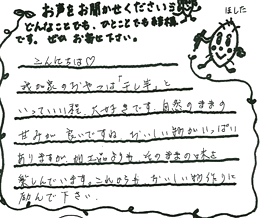 お声をお聞かせください
どんなことでも、ひとことでも結構
です。ぜひ お寄せ下さい。
ほした
こんにちは♡
我が家のおやつは「干し芋」と
いっていい程、大好きです。自然のままの
甘みが 良いですね。おいしい物がいっぱい
ありますが、加工品よりも そのままの味を
楽しんでいます。これからも おいしい物作りに
励んで下さい。